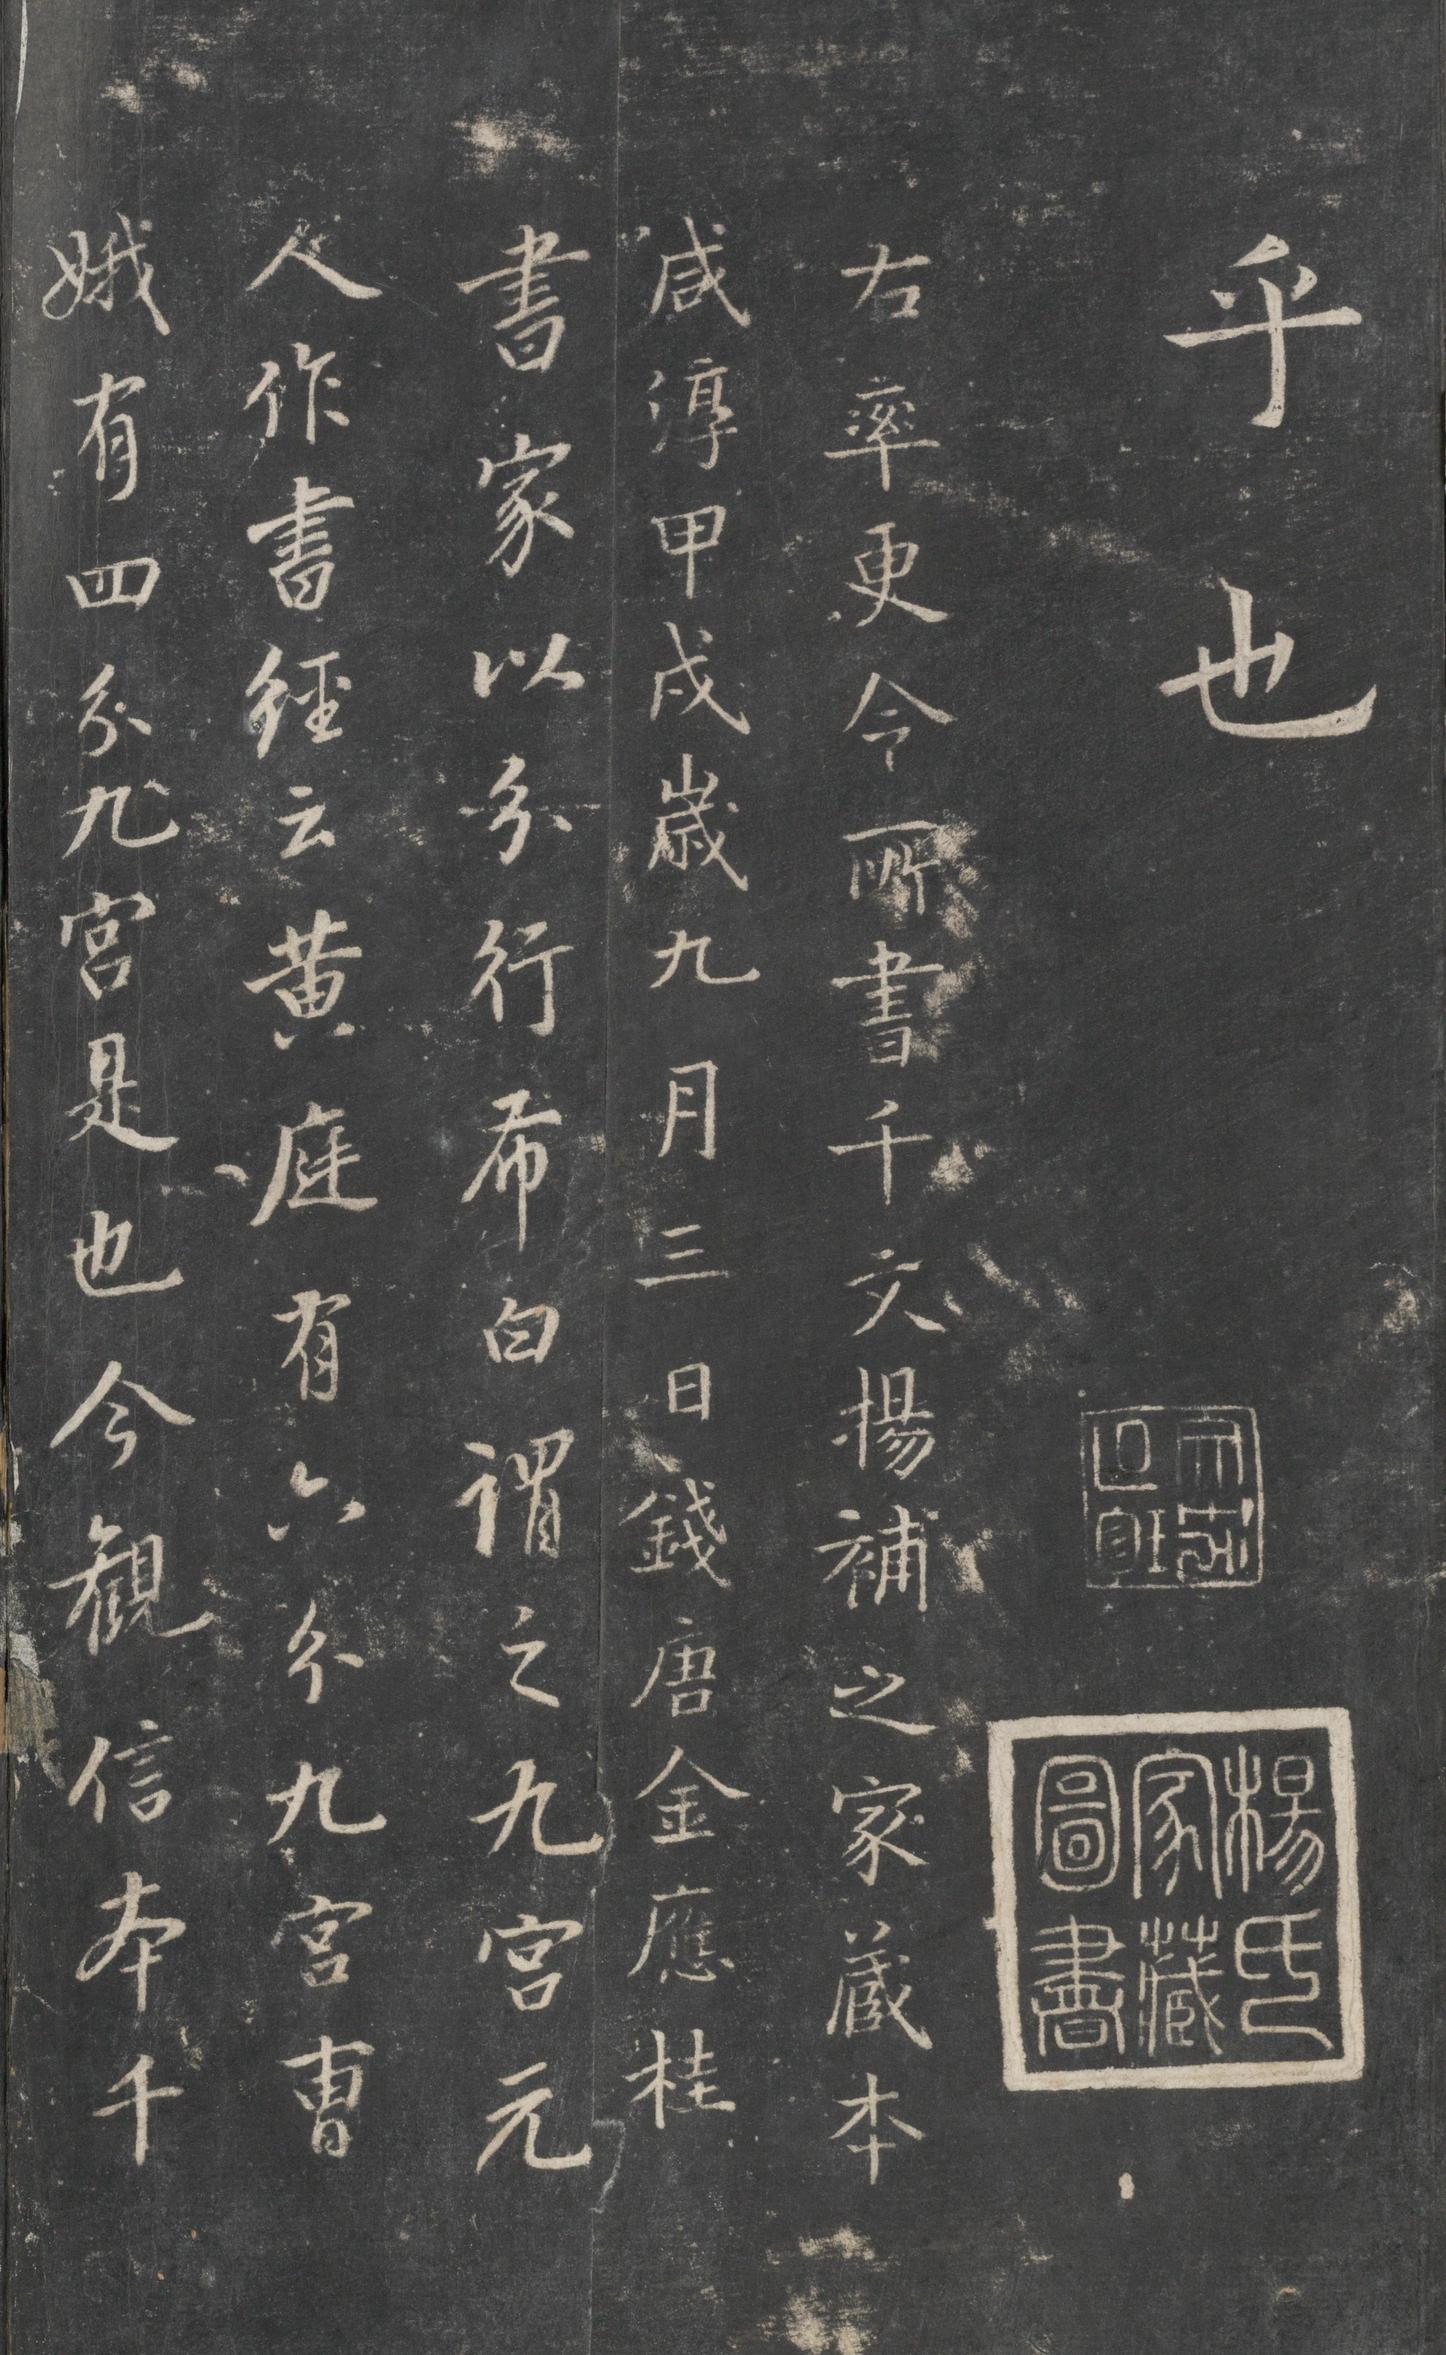 乎也
楊氏
家藏
圖書
右率更令所書千文楊補之家藏本
咸淳甲戌歲九月三日錢唐金應桂
書家以分行布白謂之九宮元
人作書經云黃庭有六分九宮曹
娥有四分九宮是也今觀信本千